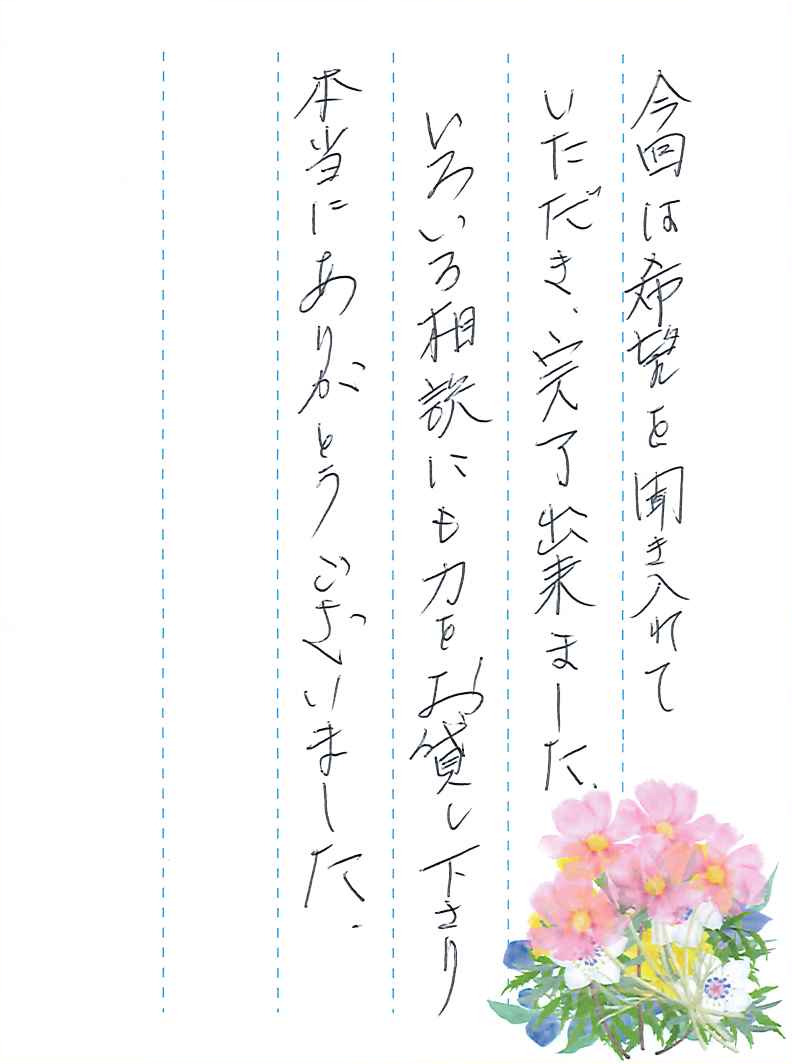 今回は希望を聞き入れて
いただき、完了出来ました、
いろいろ相談にも力をお貸し下さり
本当にありがとうございました.